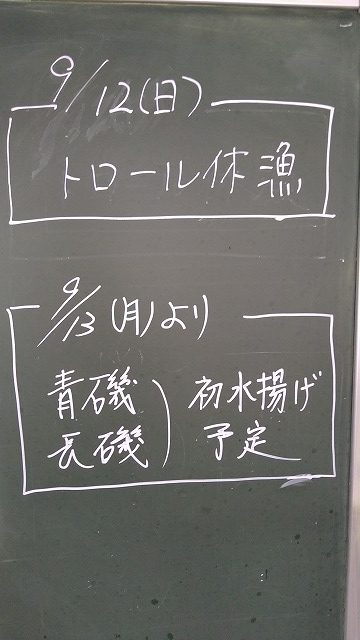 9/12(日)
トロール休漁
9/13(月)より
青磯 初水揚げ
長磯 予定